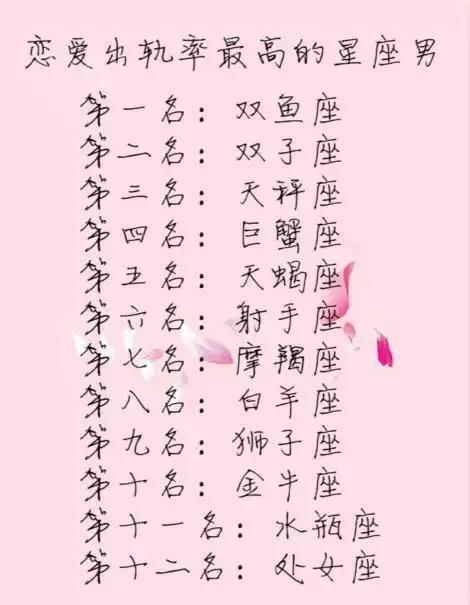 恋爱出轨率最高的星座男
第一名：双鱼座
第二名：双子座
第三名：天秤座
第四名：巨蟹座
第五名：天蝎座
第六名：射手座
第七名：摩羯座
第八名：白羊座
第九名：狮子座
第十名：金牛座
第十一名：水瓶座
第十二名：处女座